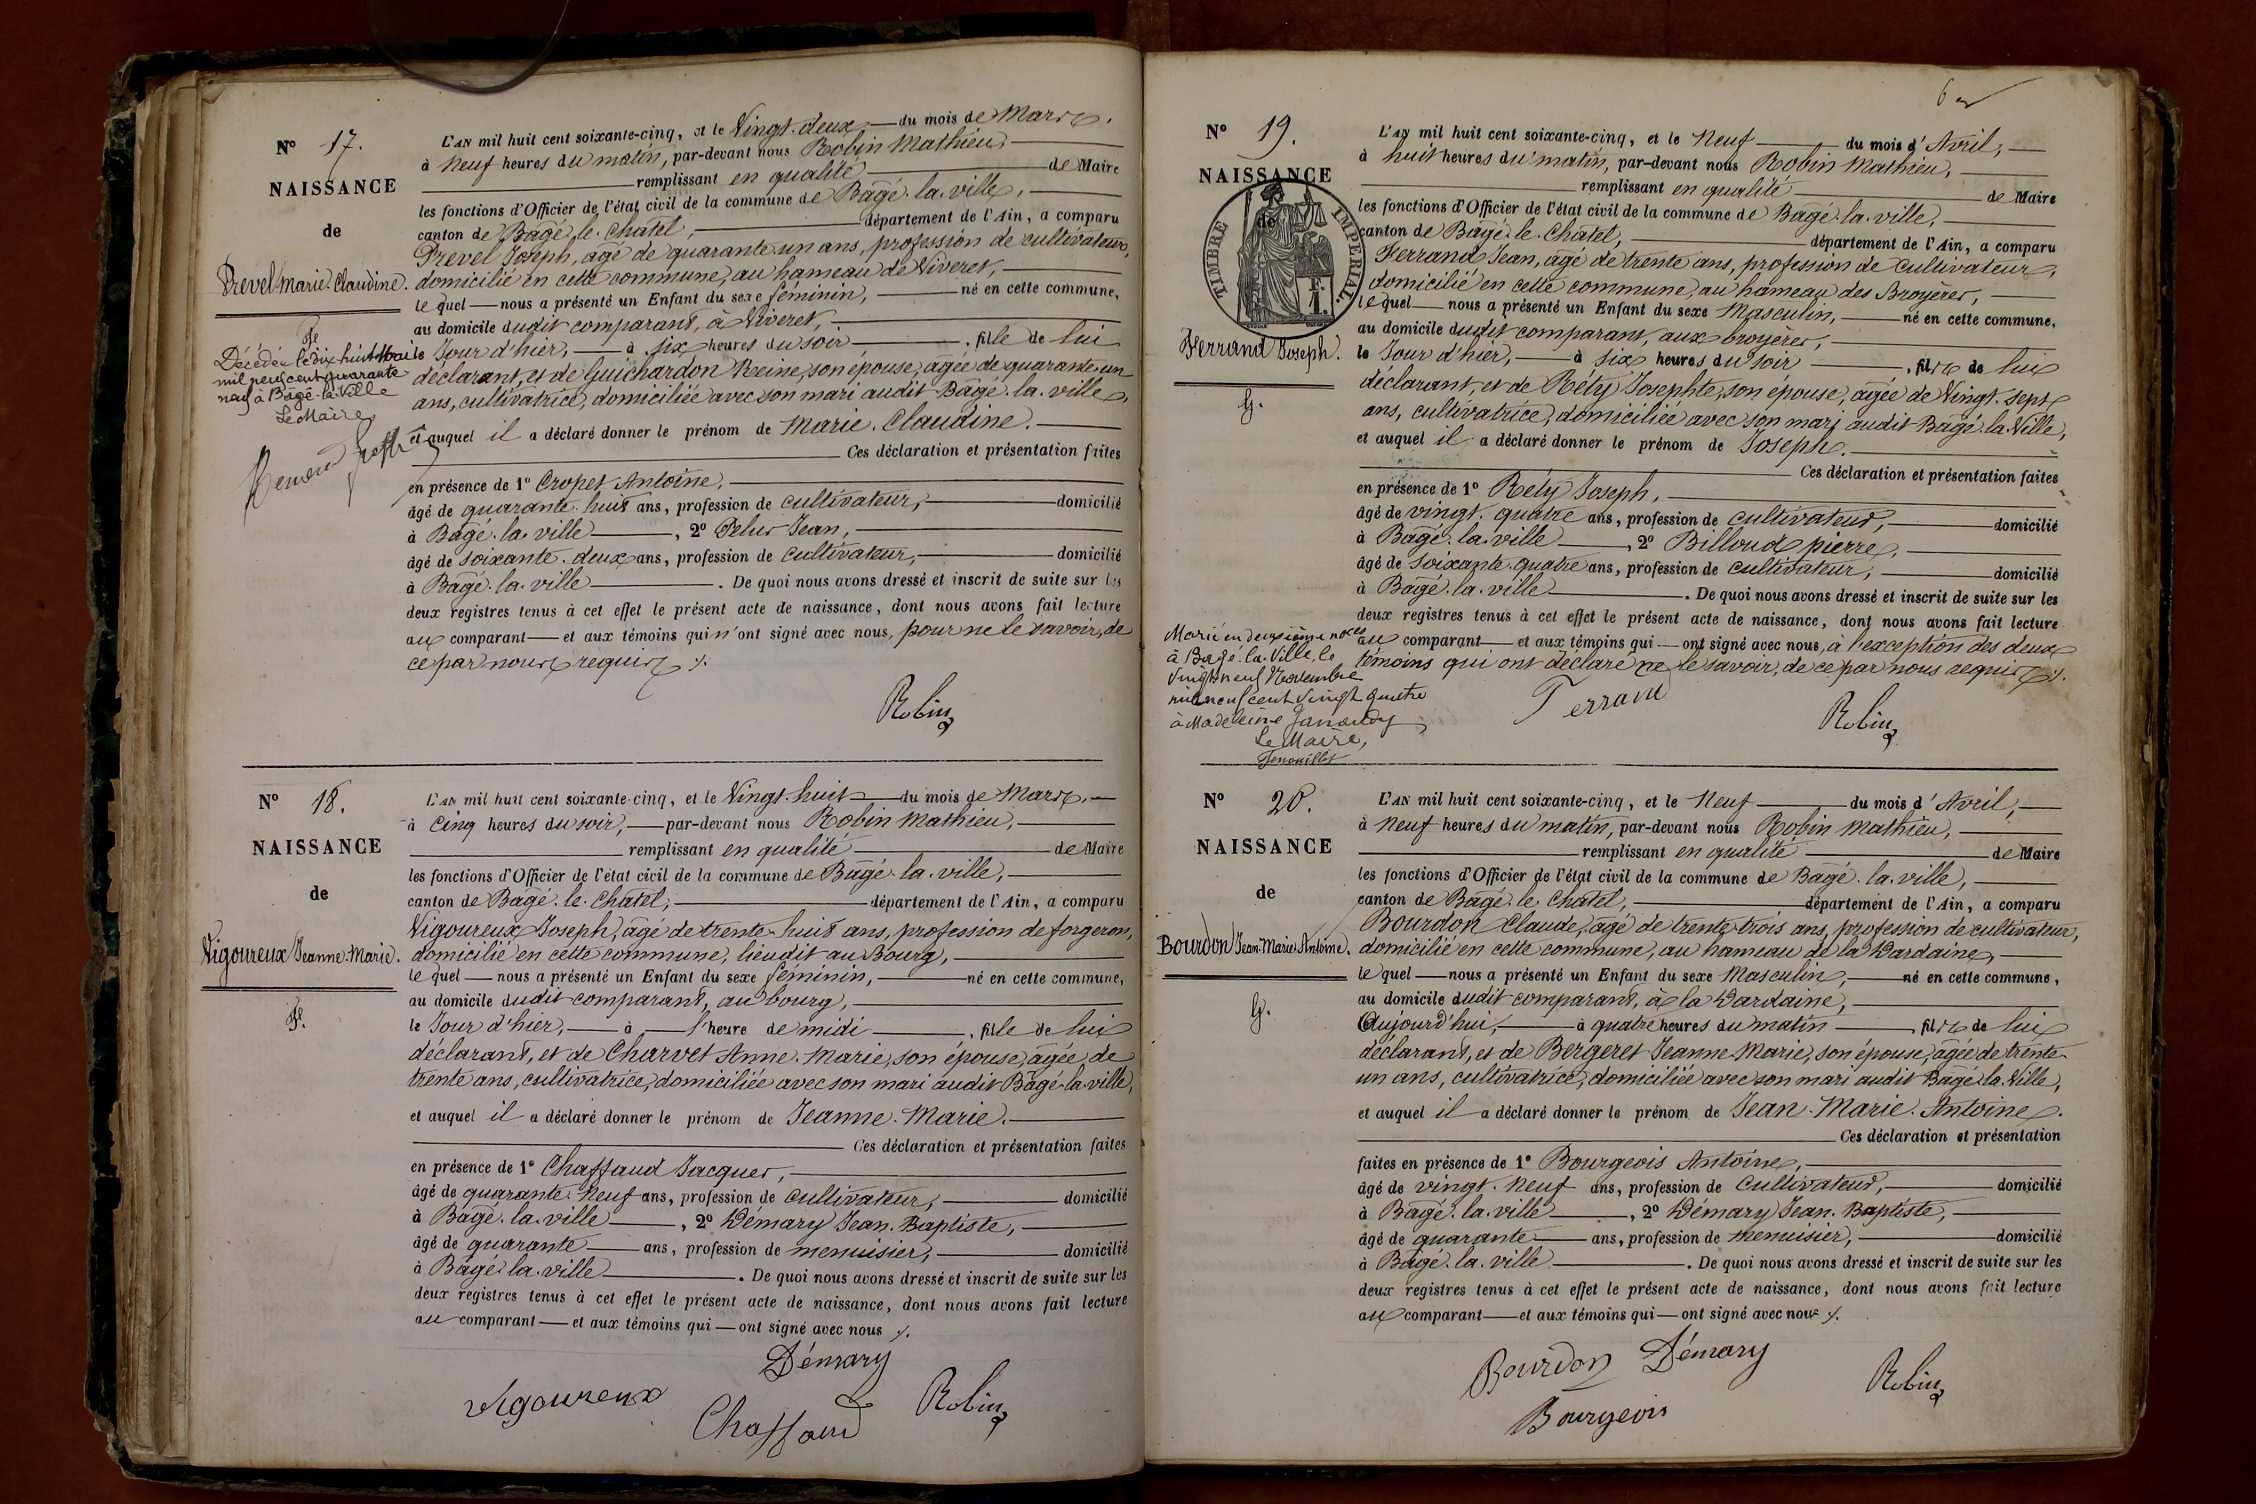 Nº 17.
NAISSANCE
de
Prevel Marie Claudine.
Fe
Décédée le dix huit Mai
mil neuf cent quarante
neuf à Bâgé-la-Ville
Le Maire
L'AN mil huit cent soixante-cinq, et le Vingt-deux du mois de Mars,
à Neuf heures du matin, par-devant nous Robin Mathieu,
remplissant en qualité de Maire
les fonctions d'Officier de l'état civil de la commune de Bâgé-la-ville,
canton de Bâgé-le-Chatel, département de l'Ain, a comparu
Prevel Joseph, âgé de quarante-un ans, profession de cultivateur,
domicilié en cette commune, au hameau de Viveret,
lequel nous a présenté un Enfant du sexe féminin, né en cette commune,
au domicile dudit comparant, à Viveret,
le Jour d'hier, à six heures du soir, fille de lui
déclarant, et de Guichardon Reine, son épouse, âgée de quarante-un
ans, cultivatrice, domiciliée avec son mari audit Bâgé-la-ville,
et auquel il a déclaré donner le prénom de Marie-Claudine.
Ces déclaration et présentation faites
en présence de 1º Cropet Antoine,
âgé de quarante-huit ans, profession de cultivateur, domicilié
à Bâgé-la-ville, 2º Velus Jean,
âgé de soixante-deux ans, profession de cultivateur, domicilié
à Bâgé-la-ville. De quoi nous avons dressé et inscrit de suite sur les
deux registres tenus à cet effet le présent acte de naissance, dont nous avons fait lecture
au comparant et aux témoins qui n'ont signé avec nous, pour ne le savoir, de
ce par nous requis ./.
Robin
Nº 18.
NAISSANCE
de
Vigoureux Jeanne-Marie.
Fe.
L'AN mil huit cent soixante-cinq, et le Vingt-huit du mois de Mars,
à Cinq heures du soir, par-devant nous Robin Mathieu,
remplissant en qualité de Maire
les fonctions d'Officier de l'état civil de la commune de Bâgé-la-ville,
canton de Bâgé-le-Chatel, département de l'Ain, a comparu
Vigoureux Joseph, âgé de trente-huit ans, profession de forgeron,
domicilié en cette commune, lieudit au Bourg,
lequel nous a présenté un Enfant du sexe féminin, né en cette commune,
au domicile dudit comparant, au bourg,
le Jour d'hier, à l'heure de midi, fille de lui
déclarant, et de Charvet Anne-Marie, son épouse, âgée de
trente ans, cultivatrice, domiciliée avec son mari audit Bâgé-la-ville,
et auquel il a déclaré donner le prénom de Jeanne-Marie.
Ces déclaration et présentation faites
en présence de 1º Chaffaud Jacques,
âgé de quarante-neuf ans, profession de cultivateur, domicilié
à Bâgé-la-ville, 2º Démary Jean-Baptiste,
âgé de quarante ans, profession de menuisier, domicilié
à Bâgé-la-ville. De quoi nous avons dressé et inscrit de suite sur les
deux registres tenus à cet effet le présent acte de naissance, dont nous avons fait lecture
au comparant et aux témoins qui ont signé avec nous ./.
Démary
Vigoureux
Chaffaud
Robin
Nº 19.
NAISSANCE
de
TIMBRE IMPERIAL.
Ferrand Joseph.
G.
Marié en deuxième noces
à Bâgé-la-Ville, le
Vingt neuf Novembre
mil neuf cent vingt quatre
à Madeleine Janaudy
Le Maire,
L'AN mil huit cent soixante-cinq, et le Neuf du mois d'Avril,
à huit heures du matin, par-devant nous Robin Mathieu,
remplissant en qualité de Maire
les fonctions d'Officier de l'état civil de la commune de Bâgé-la-ville,
canton de Bâgé-le-Chatel, département de l'Ain, a comparu
Ferrand Jean, âgé de trente ans, profession de cultivateur,
domicilié en cette commune, au hameau des Broyères,
lequel nous a présenté un Enfant du sexe Masculin, né en cette commune,
au domicile dudit comparant, aux broyères,
le Jour d'hier, à six heures du soir, fils de lui
déclarant, et de Réty Josephte, son épouse, âgée de Vingt-sept
ans, cultivatrice, domiciliée avec son mari audit Bâgé-la-Ville,
et auquel il a déclaré donner le prénom de Joseph.
Ces déclaration et présentation faites
en présence de 1º Réty Joseph,
âgé de vingt-quatre ans, profession de cultivateur, domicilié
à Bâgé-la-ville, 2º Billoud pierre,
âgé de soixante-quatre ans, profession de cultivateur, domicilié
à Bâgé-la-ville. De quoi nous avons dressé et inscrit de suite sur les
deux registres tenus à cet effet le présent acte de naissance, dont nous avons fait lecture
au comparant et aux témoins qui ont signé avec nous, à l'exception des deux
témoins qui ont déclaré ne le savoir, de ce par nous requis ./.
Ferrand
Robin
Nº 20.
NAISSANCE
de
Bourdon Jean-Marie-Antoine.
G.
L'AN mil huit cent soixante-cinq, et le Neuf du mois d'Avril,
à Neuf heures du matin, par-devant nous Robin Mathieu,
remplissant en qualité de Maire
les fonctions d'Officier de l'état civil de la commune de Bâgé-la-ville,
canton de Bâgé-le-Chatel, département de l'Ain, a comparu
Bourdon Claude, âgé de trente-trois ans, profession de cultivateur,
domicilié en cette commune, au hameau de la Vardaine,
lequel nous a présenté un Enfant du sexe Masculin, né en cette commune,
au domicile dudit comparant, à la Vardaine,
Aujourd'hui, à quatre heures du matin, fils de lui
déclarant, et de Bergeret Jeanne-Marie, son épouse, âgée de trente-
un ans, cultivatrice, domiciliée avec son mari audit Bâgé-la-Ville,
et auquel il a déclaré donner le prénom de Jean-Marie-Antoine.
Ces déclaration et présentation
faites en présence de 1º Bourgeois Antoine,
âgé de vingt-neuf ans, profession de cultivateur, domicilié
à Bâgé-la-ville, 2º Démary Jean-Baptiste,
âgé de quarante ans, profession de menuisier, domicilié
à Bâgé-la-ville. De quoi nous avons dressé et inscrit de suite sur les
deux registres tenus à cet effet le présent acte de naissance, dont nous avons fait lecture
au comparant et aux témoins qui ont signé avec nous ./.
Bourdon
Démary
Bourgeois
Robin